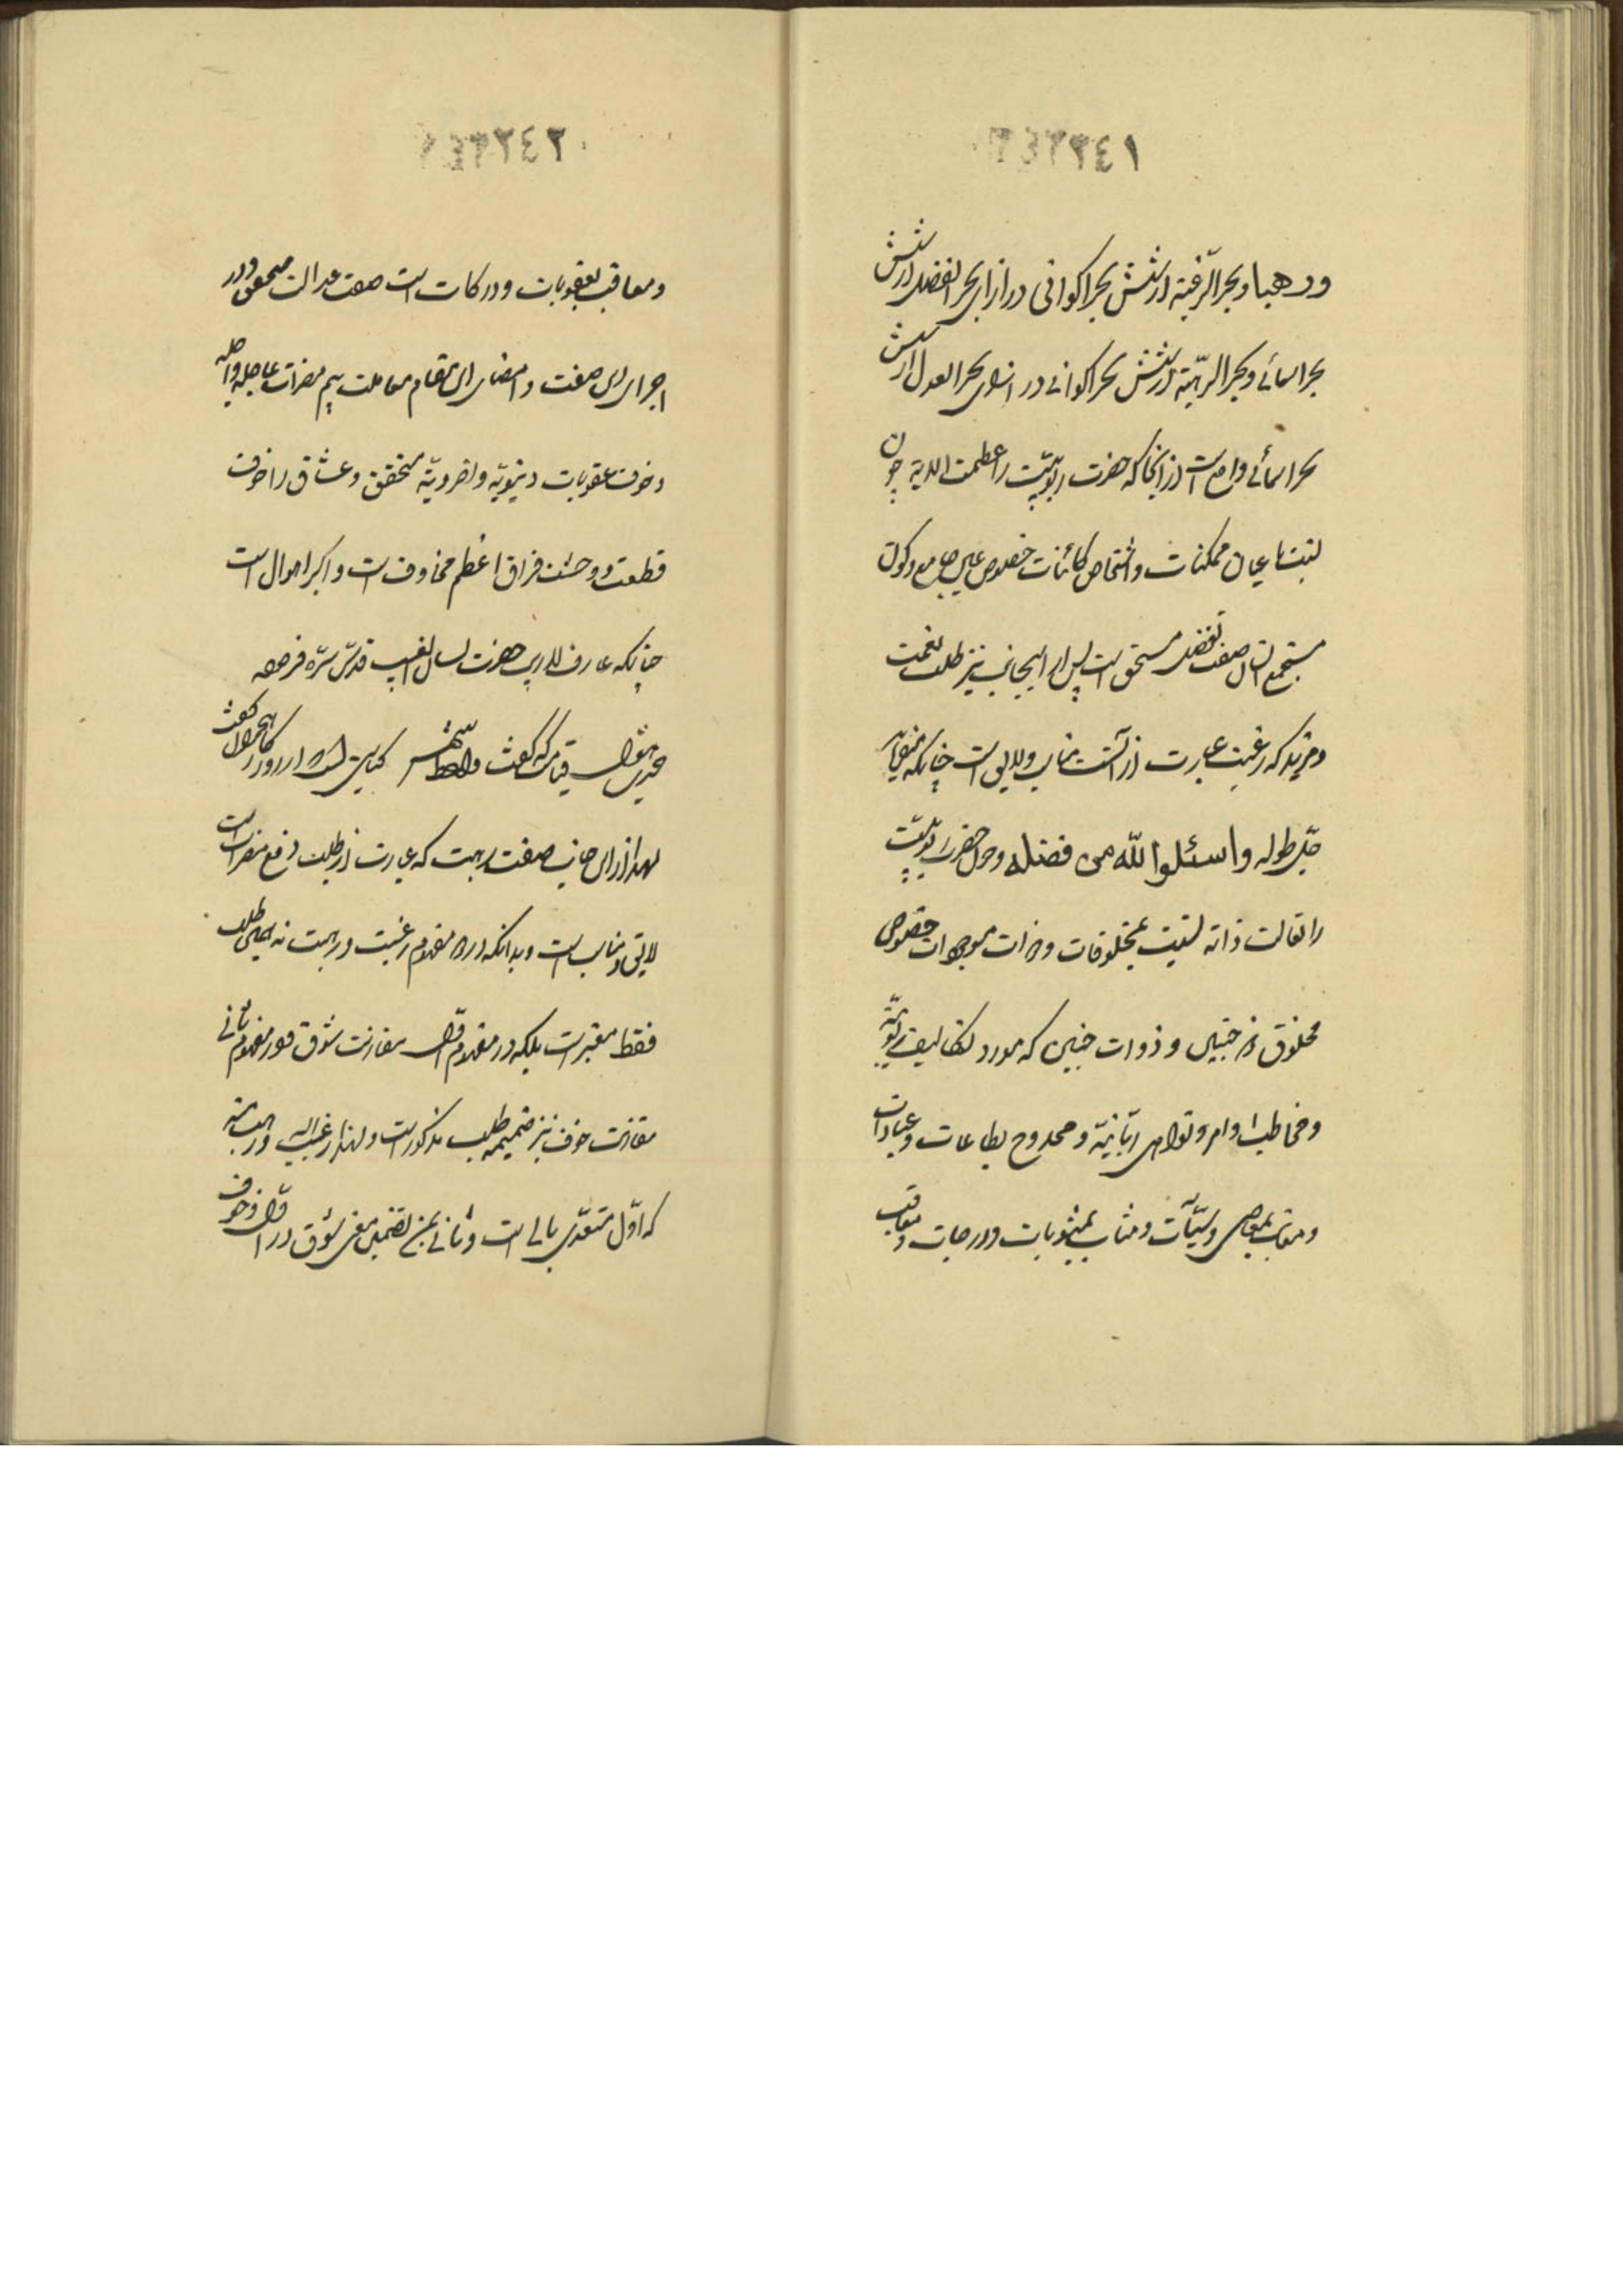 ٢٤٢٢٤١
ورهبا وبحر الرّغبة از شش بحر اکوانی در ازای بحر الفضل از شش
بحر اسمائی وبحر الرّهبة از شش بحر اکوانی در ازای بحر العدل از شش
بحر اسمائی واقع است از آنجا که حضرت ربوبیّت را عظمت الدیه چون
بنسبت اعیان ممکنات واشخاص کائنات خصوص
مستجمع انسان صفت تفضل مستحق است پس از اینجانب نیز طلب نعمت
ومزید که رغبت عبارت از آنست مناسب ولایق است چنانکه میفرماید
جلّ طوله واسئلوا الله من فضله وچون حضرت ربوبیّت
را تعالت ذاته بنسبت مخلوقات وذرات موجودات خصوص
مخلوق چنین وذوات چنین که مورد تکالیف ربوبیّة
ومخاطب اوامر ونواهی ربّانیّة وممدوح بطاعات وعبادات
ومعاتب بمعاصی وسیّئآت ومثاب بمثوبات ودرجات ومعاقب
٢٤٢٢٤٢
ومعاقب بعقوبات ودرکات است صفت عدالت متحقق ودر
اجرای این صفت وامضای این مقام معاملت بیم مضرات عاجله وآجله
وخوف عقوبات دنیویّة واخرویّة متحقق وعشاق را خوف
قطعت ووحشت فراق اعظم مخاوف است واکبر اهوال است
چنانکه عارف للاریب حضرت لسان الغیب قدّس سرّه فرموده
حدیث هول قیامت که گفت واعظ شهر کنایتی است که از روزگار هجران گفت
لهذا از این جانب صفت رهبت که عبارت از طلب دفع مضرات است
لایق ومناسب است وبدانکه در مفهوم رغبت ورهبت نه همین طلب
فقط معتبر است بلکه در مفهوم اوّل مقارنت شوق ودر مفهوم ثانی
مقارنت خوف نیز ضمیمه طلب مذکور است ولهذا رغب الیه ورهب منه
که اوّل متعدّی بالی است وثانی بمن بتضمین معنی شوق در اوّل وخوف